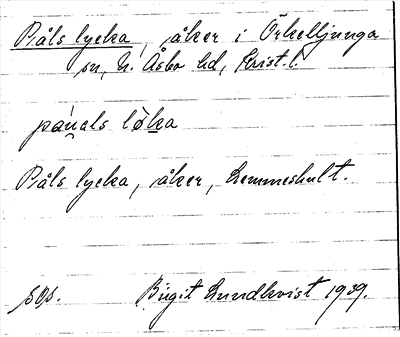 Påls lycka, åker i Örkelljunga
sn, N. Åsbo hd, Krist. l.
Påls lycka, åker, Lemmeshult.
sop. Birgit Lundkvist 1939.